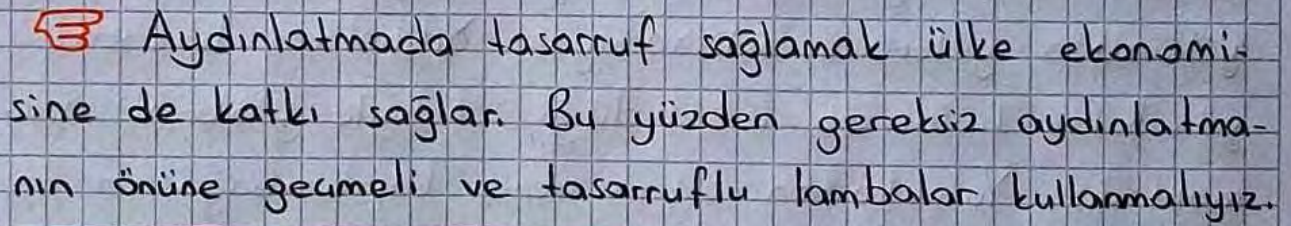 Aydınlatmada tasarruf sağlamak ülke ekonomi-
sine de katkı sağlar. Bu yüzden gereksiz aydınlatma-
nın önüne geçmeli ve tasarruflu lambalar kullanmalıyız.